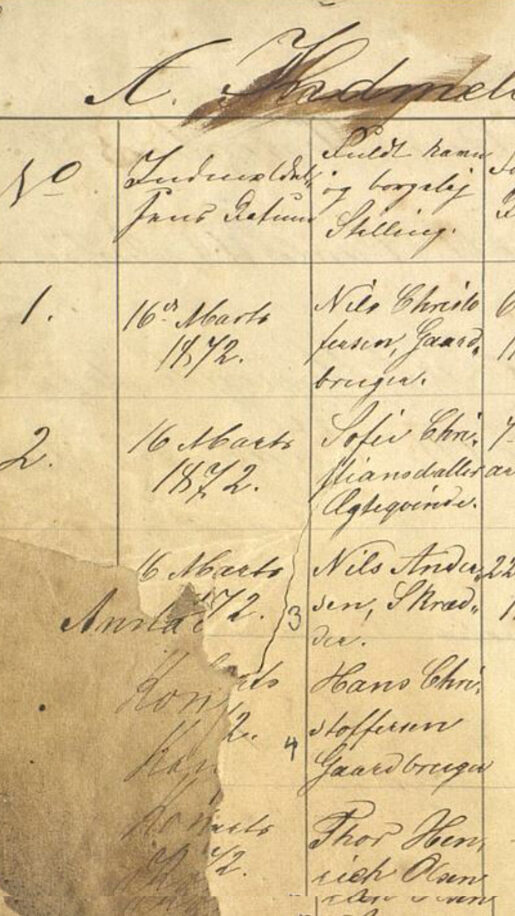 A. Indmeld
No
Indmeldel-
sens Datum
Fuldt Navn
og borgelig
Stilling.
1.
16de Marts
1872.
Nils Christo
fersen, Gaard-
bruger.
2.
16 Marts
1872.
Sofie Chri-
stiansdatter
Ægteqvinde.
16 Marts
72.
3
Nils Ander-
sen, Skræd-
der.
rts
2.
4
Hans Chri-
stoffersen
Gaardbruger
Marts
72.
Thor Hen-
rich Olsen